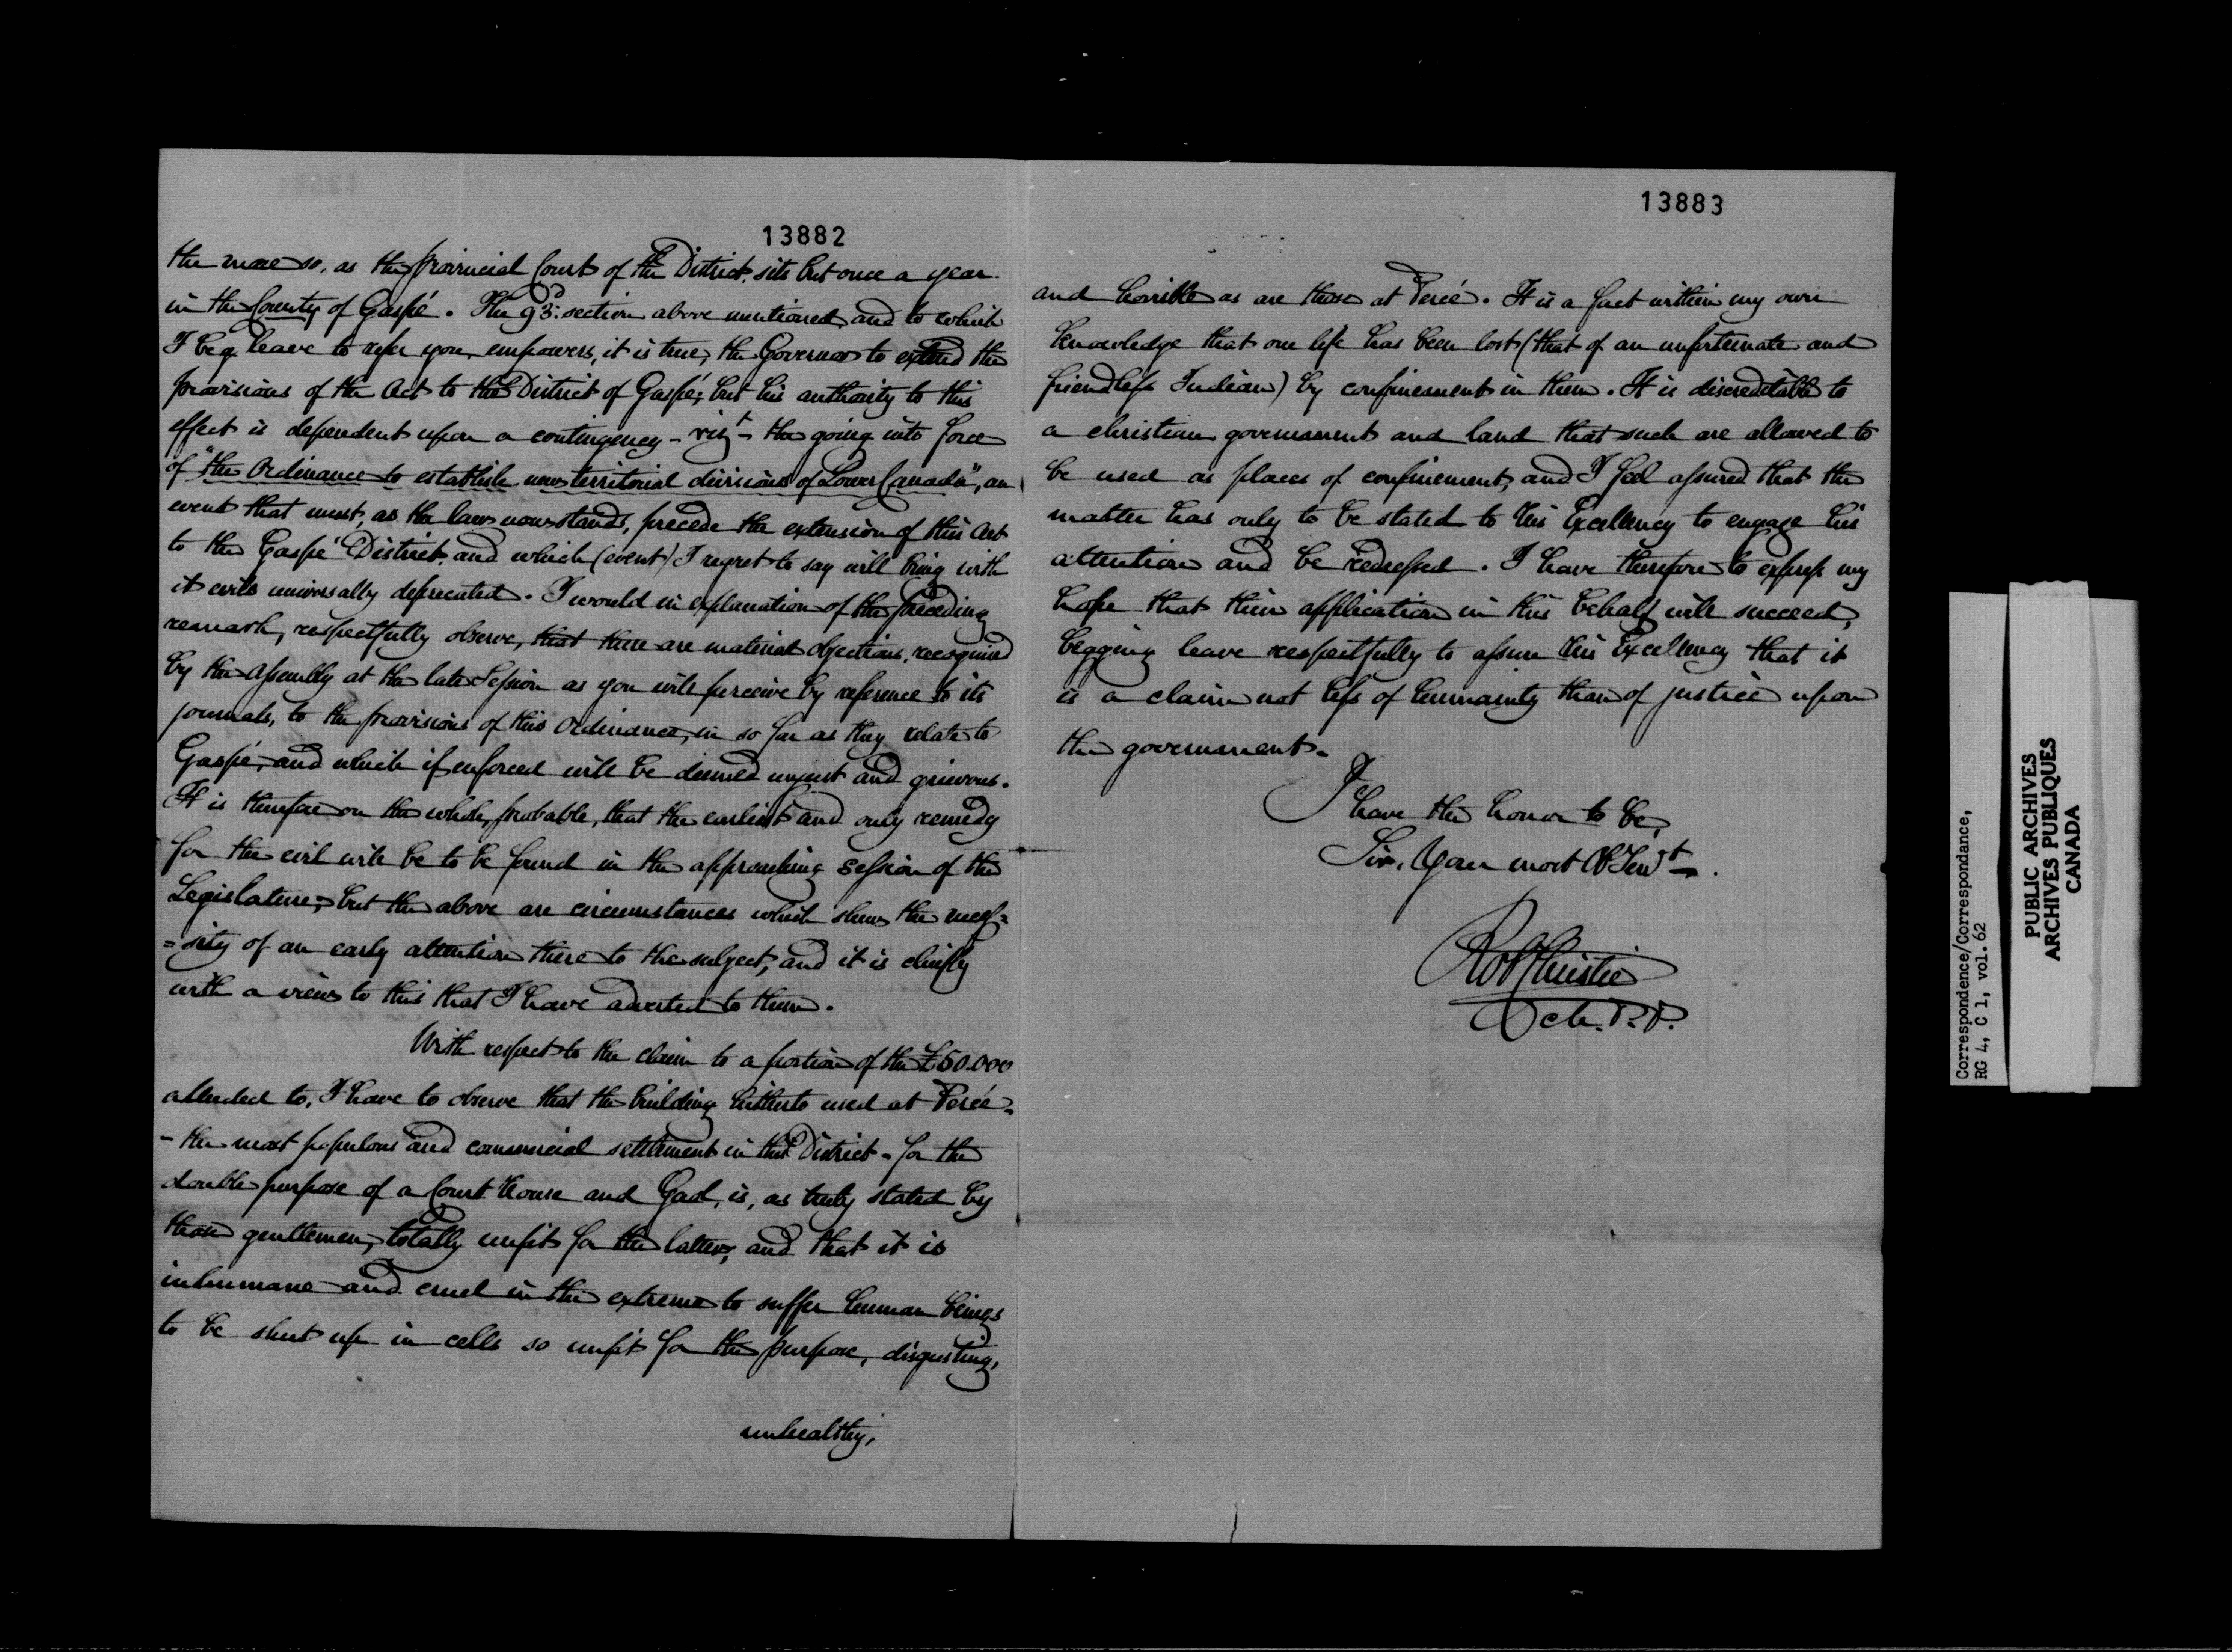 13882
the more so, as the Provincial Court of the District, sits but once a year
in the County of Gaspé. The 93d: section above mentioned and to which
I beg leave to refer you, empowers, it is true, the Governor to extend the
provisions of the Act to the District of Gaspé; but his authority to this
effect is dependent upon a contingency - vizt - the going into force
of "the Ordinance to establish new territorial divisions of Lower Canada", an
event that must, as the law now stands, precede the extension of this Act
to the Gaspé District, and which (event) I regret to say will bring with
it evils universally deprecated. I would in explanation of the preceding
remark, respectfully observe, that there are material objections, recognised
by the Assembly at the late Session as you will perceive by reference to its
journals, to the provisions of this Ordinance, in so far as they relate to
Gaspé, and which if enforced will be deemed unjust and grievous.
It is therefore on the whole, probable, that the earliest and only remedy
for the evil will be to be found in the approaching session of the
Legislature; but the above are circumstances which shew the neces=
=sity of an early attention there to the subject, and it is chiefly
with a view to this that I have adverted to them.
With respect to the claim to a portion of the £50.000
alluded to, I have to observe that the building hitherto used at Percé -
- the most populous and commercial settlement in this District - for the
double purpose of a Court House and Gaol, is, as truly stated by
those gentlemen, totally unfit for the latter, and that it is
inhumane and cruel in the extreme to suffer human beings
to be shut up in cells so unfit for the purpose, disgusting,
unhealthy,
13883
and horrible as are those at Percé. It is a fact within my own
knowledge that one life has been lost (that of an unfortunate and
friendless Indian) by confinement in them. It is discreditable to
a christian government and land that such are allowed to
be used as places of confinement, and I feel assured that the
matter has only to be stated to His Excellency to engage his
attention and be redressed. I have therefore to express my
hope that their application in this behalf will succeed,
begging leave respectfully to assure His Excellency that it
is a claim not less of humanity than of justice upon
the government.
I have the honor to be,
Sir, Your most Ob Servt.
Rob Christie
M.P.P.
Correspondence/Correspondance,
RG 4, C 1, vol. 62
PUBLIC ARCHIVES
ARCHIVES PUBLIQUES
CANADA